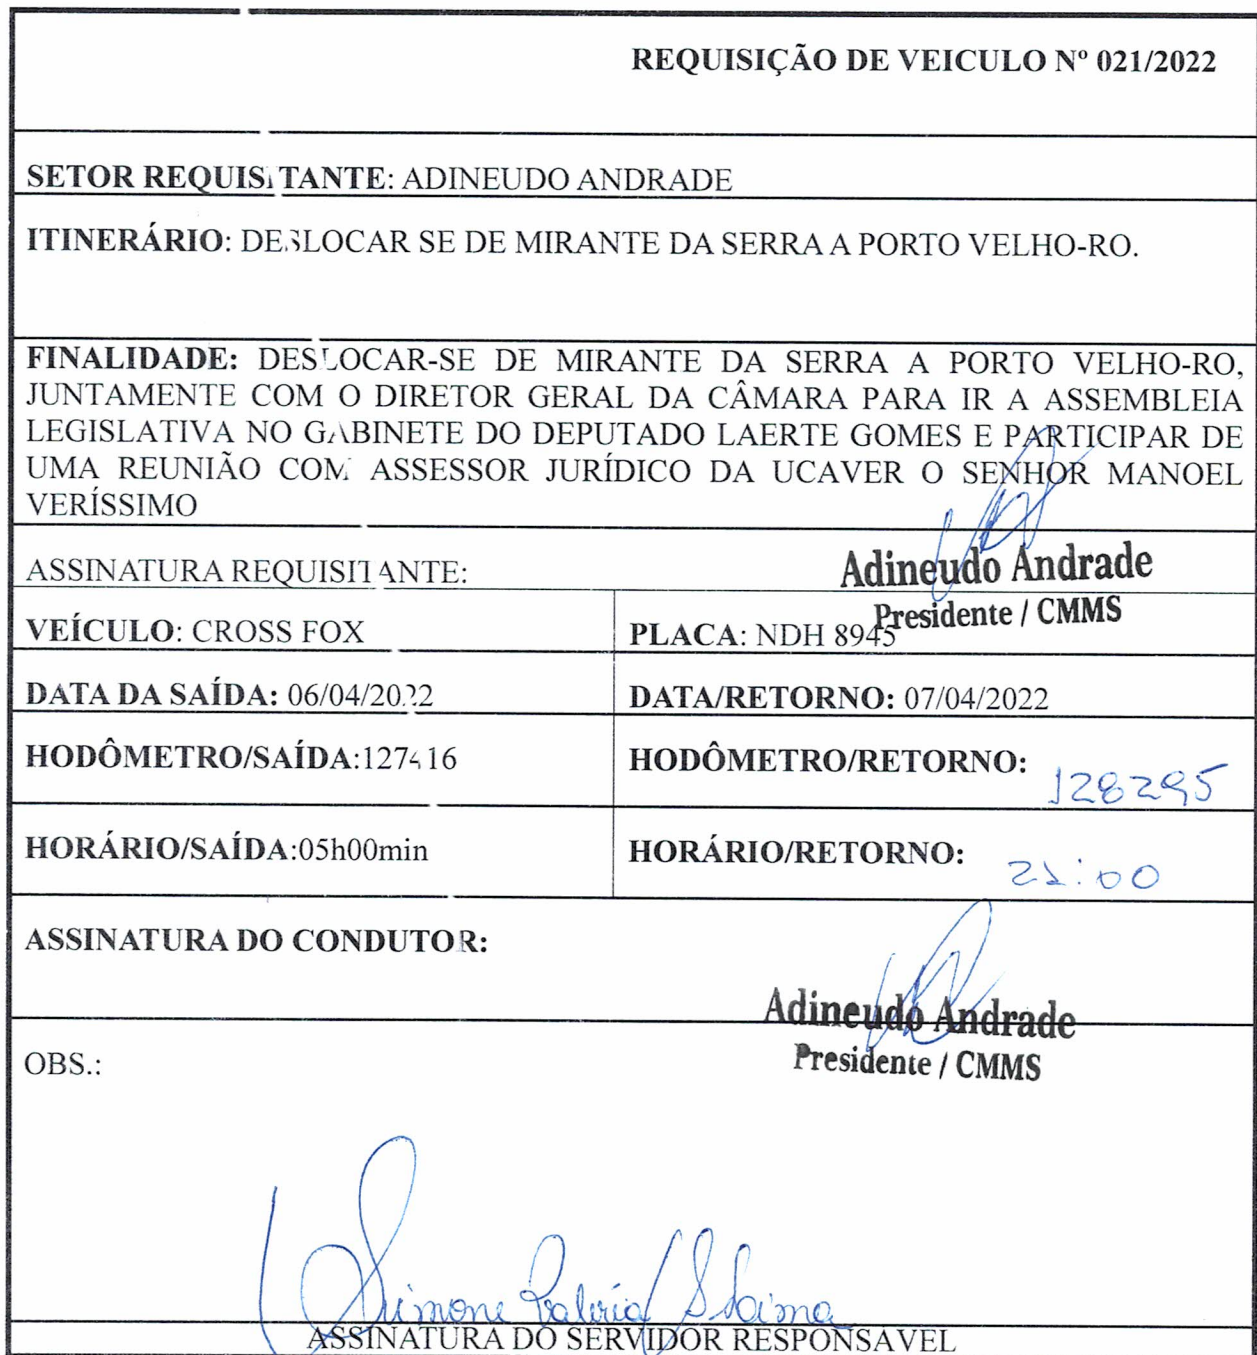 REQUISIÇÃO DE VEICULO Nº 021/2022
SETOR REQUISITANTE: ADINEUDO ANDRADE
ITINERÁRIO: DESLOCAR SE DE MIRANTE DA SERRA A PORTO VELHO-RO.
FINALIDADE: DESLOCAR-SE DE MIRANTE DA SERRA A PORTO VELHO-RO,
JUNTAMENTE COM O DIRETOR GERAL DA CÂMARA PARA IR A ASSEMBLEIA
LEGISLATIVA NO GABINETE DO DEPUTADO LAERTE GOMES E PARTICIPAR DE
UMA REUNIÃO COM ASSESSOR JURÍDICO DA UCAVER O SENHOR MANOEL
VERÍSSIMO
ASSINATURA REQUISITANTE:
Adineudo Andrade
Presidente / CMMS
VEÍCULO: CROSS FOX
PLACA: NDH 8945
DATA DA SAÍDA: 06/04/2022
DATA/RETORNO: 07/04/2022
HODÔMETRO/SAÍDA:127416
HODÔMETRO/RETORNO: 128295
HORÁRIO/SAÍDA:05h00min
HORÁRIO/RETORNO:
ASSINATURA DO CONDUTOR:
Adineudo Andrade
Presidente / CMMS
OBS.:
Simone
ASSINATURA DO SERVIDOR RESPONSAVEL